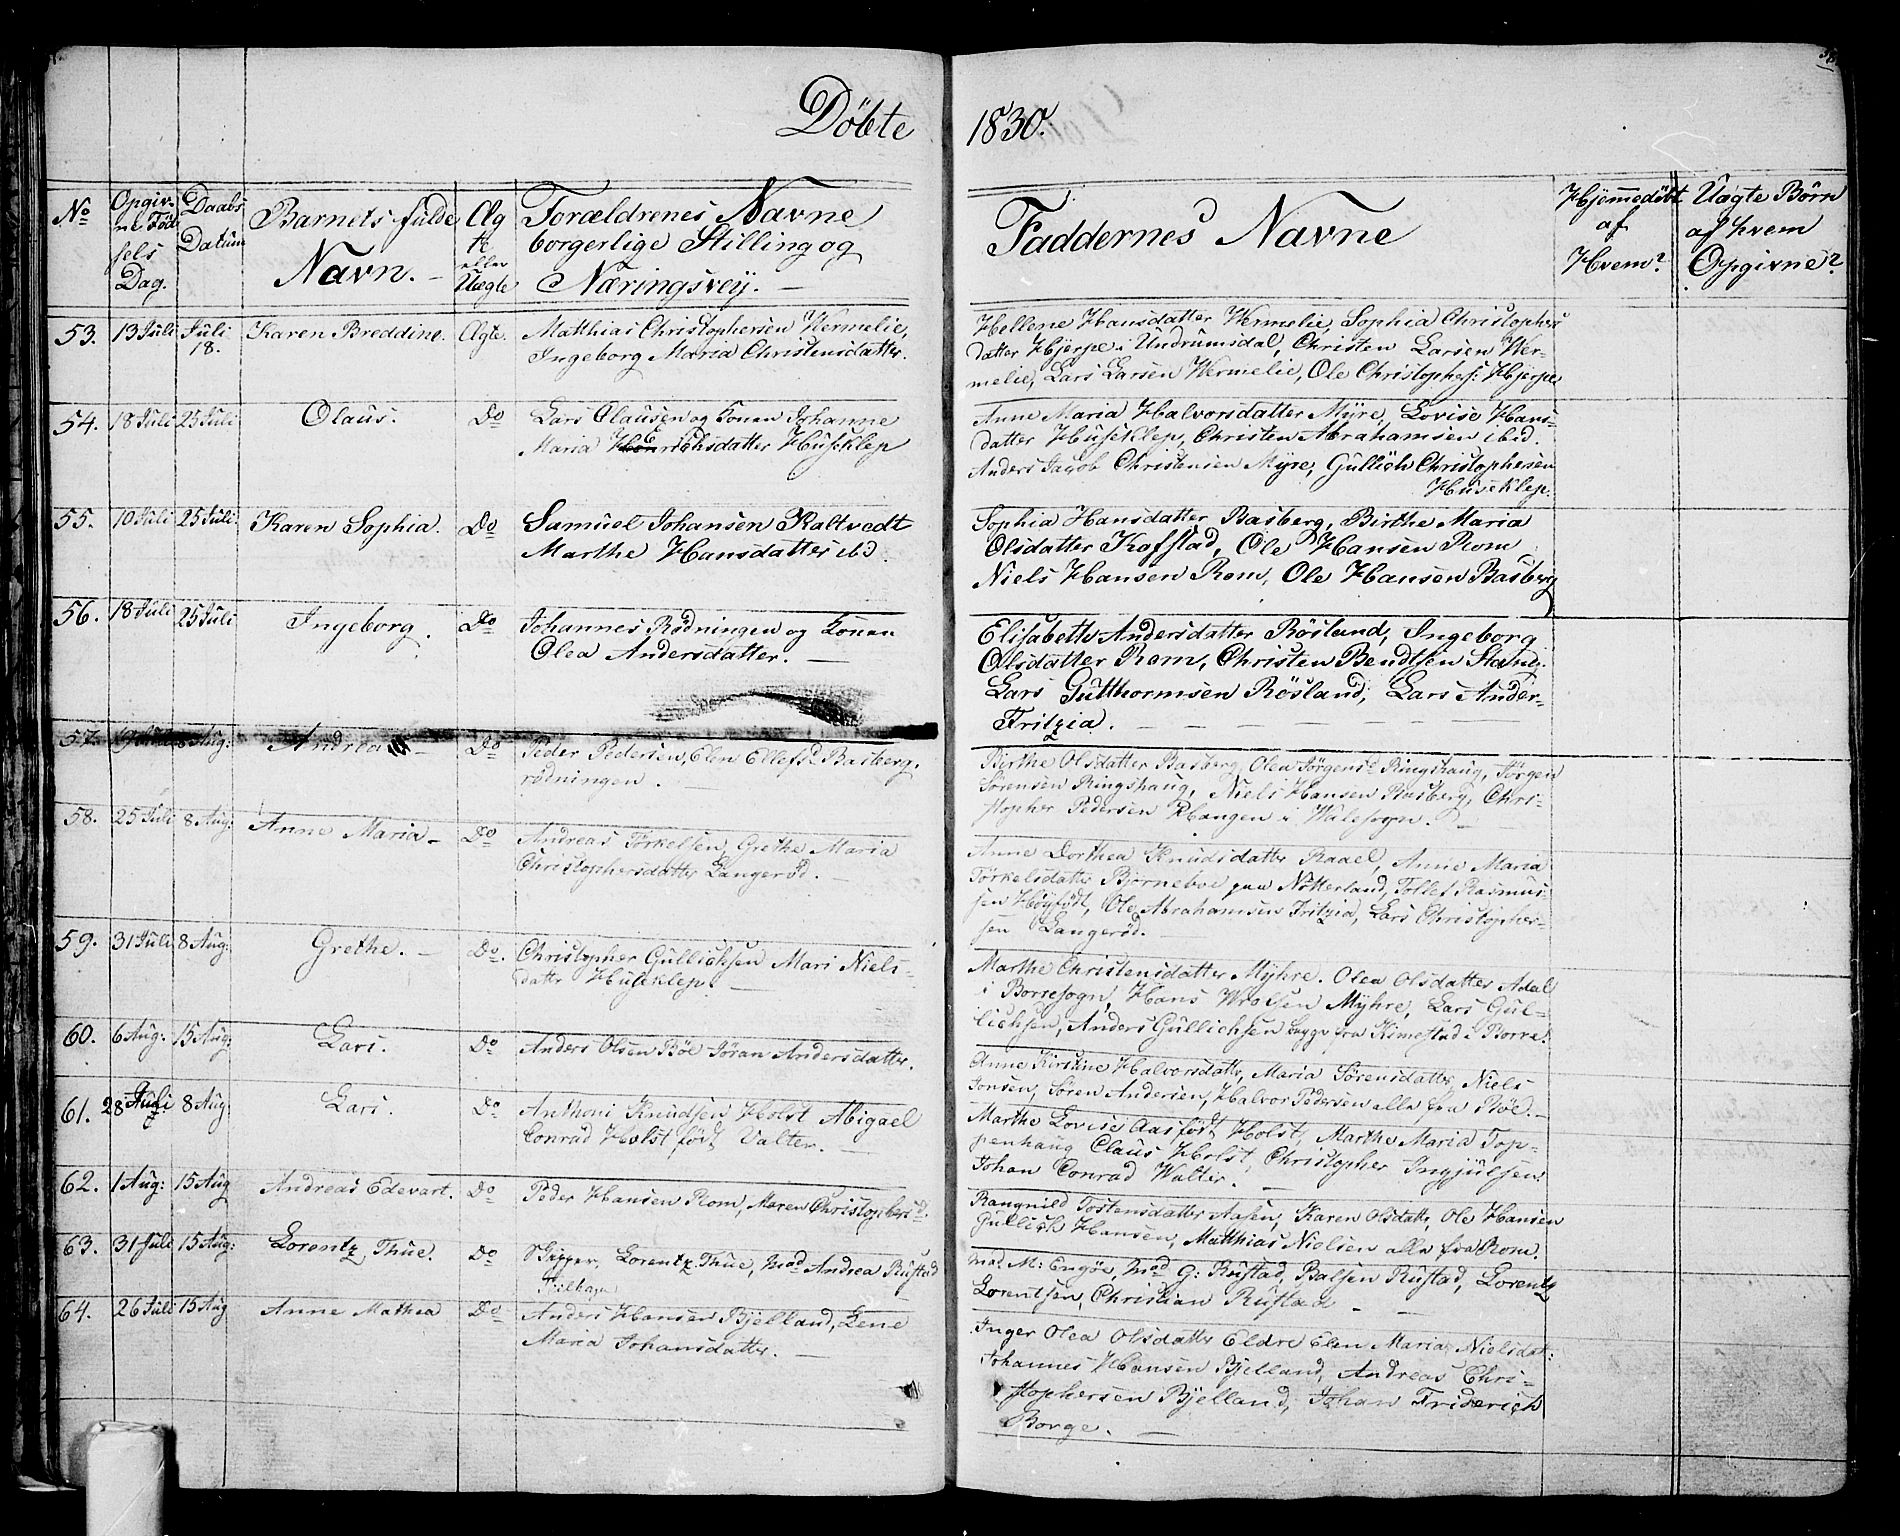 Döbte 1830.
No
Opgiv-
ne Föd
sels
Dag.
Daabs
Datum
Barnets fulde
Navn. –
Æg
te
eller
Uægte
Forældrenes Navne
borgerlige Stilling og
Næringsvej. –
Faddernes Navne
Hjemmedöbt
af
Hvem?
Uægte Börn
af hvem
Opgivne?
53. 13 Juli Juli 18. Karen Breddine. Ægte.
Matthias Christophersen Wermelie,
Ingeborg Maria Christensdatter.
Hellene Hansdatter Wermelie, Sophia Christophers
datter Hjerpe i Undrumsdal, Christen Larsen Wer-
melie, Lars Larsen Wermelie, Ole Christophes: Hjerpe
54. 18 Juli 25 Juli Olaus. Do
Lars Olausen og Konen Johanne
Maria Henrichsdatter Huseklep
Anne Maria Halvorsdatter Myre, Lovise Hans-
datter Huseklep, Christen Abrahamsen ibid.
Anders Jacob Christensen Myre, Gullich Christophersen
Huseklep.
55. 10 Juli 25 Juli. Karen Sophia. Do
Samuel Johansen Kaltvedt
Marthe Hansdatter ibd.
Sophia Hansdatter Basberg, Birthe Maria
Olsdatter Kofstad, Ole Hansen Rom
Niels Hansen Rom, Ole Hansen Basberg
56. 18 Juli 25 Juli Ingeborg. Do
Johannes Rödningen og Konen
Olea Andersdatter. –
Elisabeth Andersdatter Rösland, Ingeborg
Olsdatter Rom, Christen Bendtsen
Lars Gutthormsen Rösland, Lars Ander-
Fritzea. – – – –
57. 8 Aug: Andrea – Do
Peder Pedersen, Elen Ellefsd. Basberg.
rödningen. –
Birthe Olsdatter Basberg, Olea Jörgensd. Ringshaug, Jörgen
Sörensen Ringshaug, Niels Hansen Basberg, Chri-
stopher Pedersen Haugen i Walesogn. –
58. 25 Juli 8 Aug: Anne Maria – Do
Andreas Törkelsen, Grethe Maria
Christophersdatter Langeröd. –
Anne Dorthea Knudsdatter Raael, Anne Maria
Törkelsdatter Bjerneboe paa Nötterland, Tollef Rasmus-
sen Högfödt, Ole Abrahamsen Fritzea, Lars Christopher-
sen Langeröd.
59. 31 Juli 8 Aug: Grethe. – Do.
Christopher Gullichsen Mari Niels-
datter Huseklep. –
Marthe Christensdatter Myhre. Olea Olsdatter Adal
i Borresogn, Hans Wrolsen Myhre, Lars Gul-
lichsen, Anders Gullichsen begge fra Kimestad i Borre.
60. 6 Aug: 15 Aug: Lars. Do
Anders Olsen Böe Jöran Andersdatter.
Anne Kirstine Halvorsdatter, Maria Sörensdatter, Niels
Jonsen, Sören Andersen, Halvor Pedersen alle fra Böe. –
61. 28 Juli 8 Aug: Lars. Do
Anthoni Knudsen Holst Abigael
Conrad Holst födt Valter. –
Marthe Lovise Aas födt Holst, Marthe Maria Top-
penhaug Claus Holst, Christopher Ingjulsen.
Johan Conrad Walter. –
62. 1 Aug: 15 Aug Andreas Edevart. Do
Peder Hansen Rom, Maren Christophersd.
Rangnild Tostensdatter Aasen, Karen Olsdatter, Ole Hansen
Gullich Hansen, Matthias Nielsen alle fra Rom.
63. 31 Juli 15 Aug: Lorentz Thue. Do
Skipper Lorentz Thue, Mad Andrea Rustad
Mad. M: Engöe, Mad G: Rustad, Balsen Rustad, Lorentz
Lorentsen, Christian Rustad – –
64. 26 Juli 15 Aug Anne Mathea Do
Anders Hansen Bjelland, Lene
Maria Johansdatter. –
Inger Olea Olsdatter Eldre Elen Maria Nielsdatt:
Johannes Hansen Bjelland, Andreas Chri-
stophersen Bjelland, Johan Friderich
Borge. –